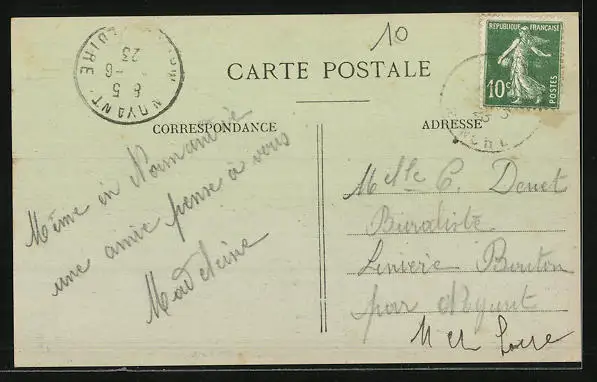 10
REPUBLIQUE FRANÇAISE
10c
POSTES
NOYANT
LOIRE
8-6
23
CARTE POSTALE
CORRESPONDANCE
ADRESSE
Même in Normandie
une amie pense à vous
Madeleine
Melle C. Denet
Buraliste
Linière Bouton
par Noyant
M et Loire